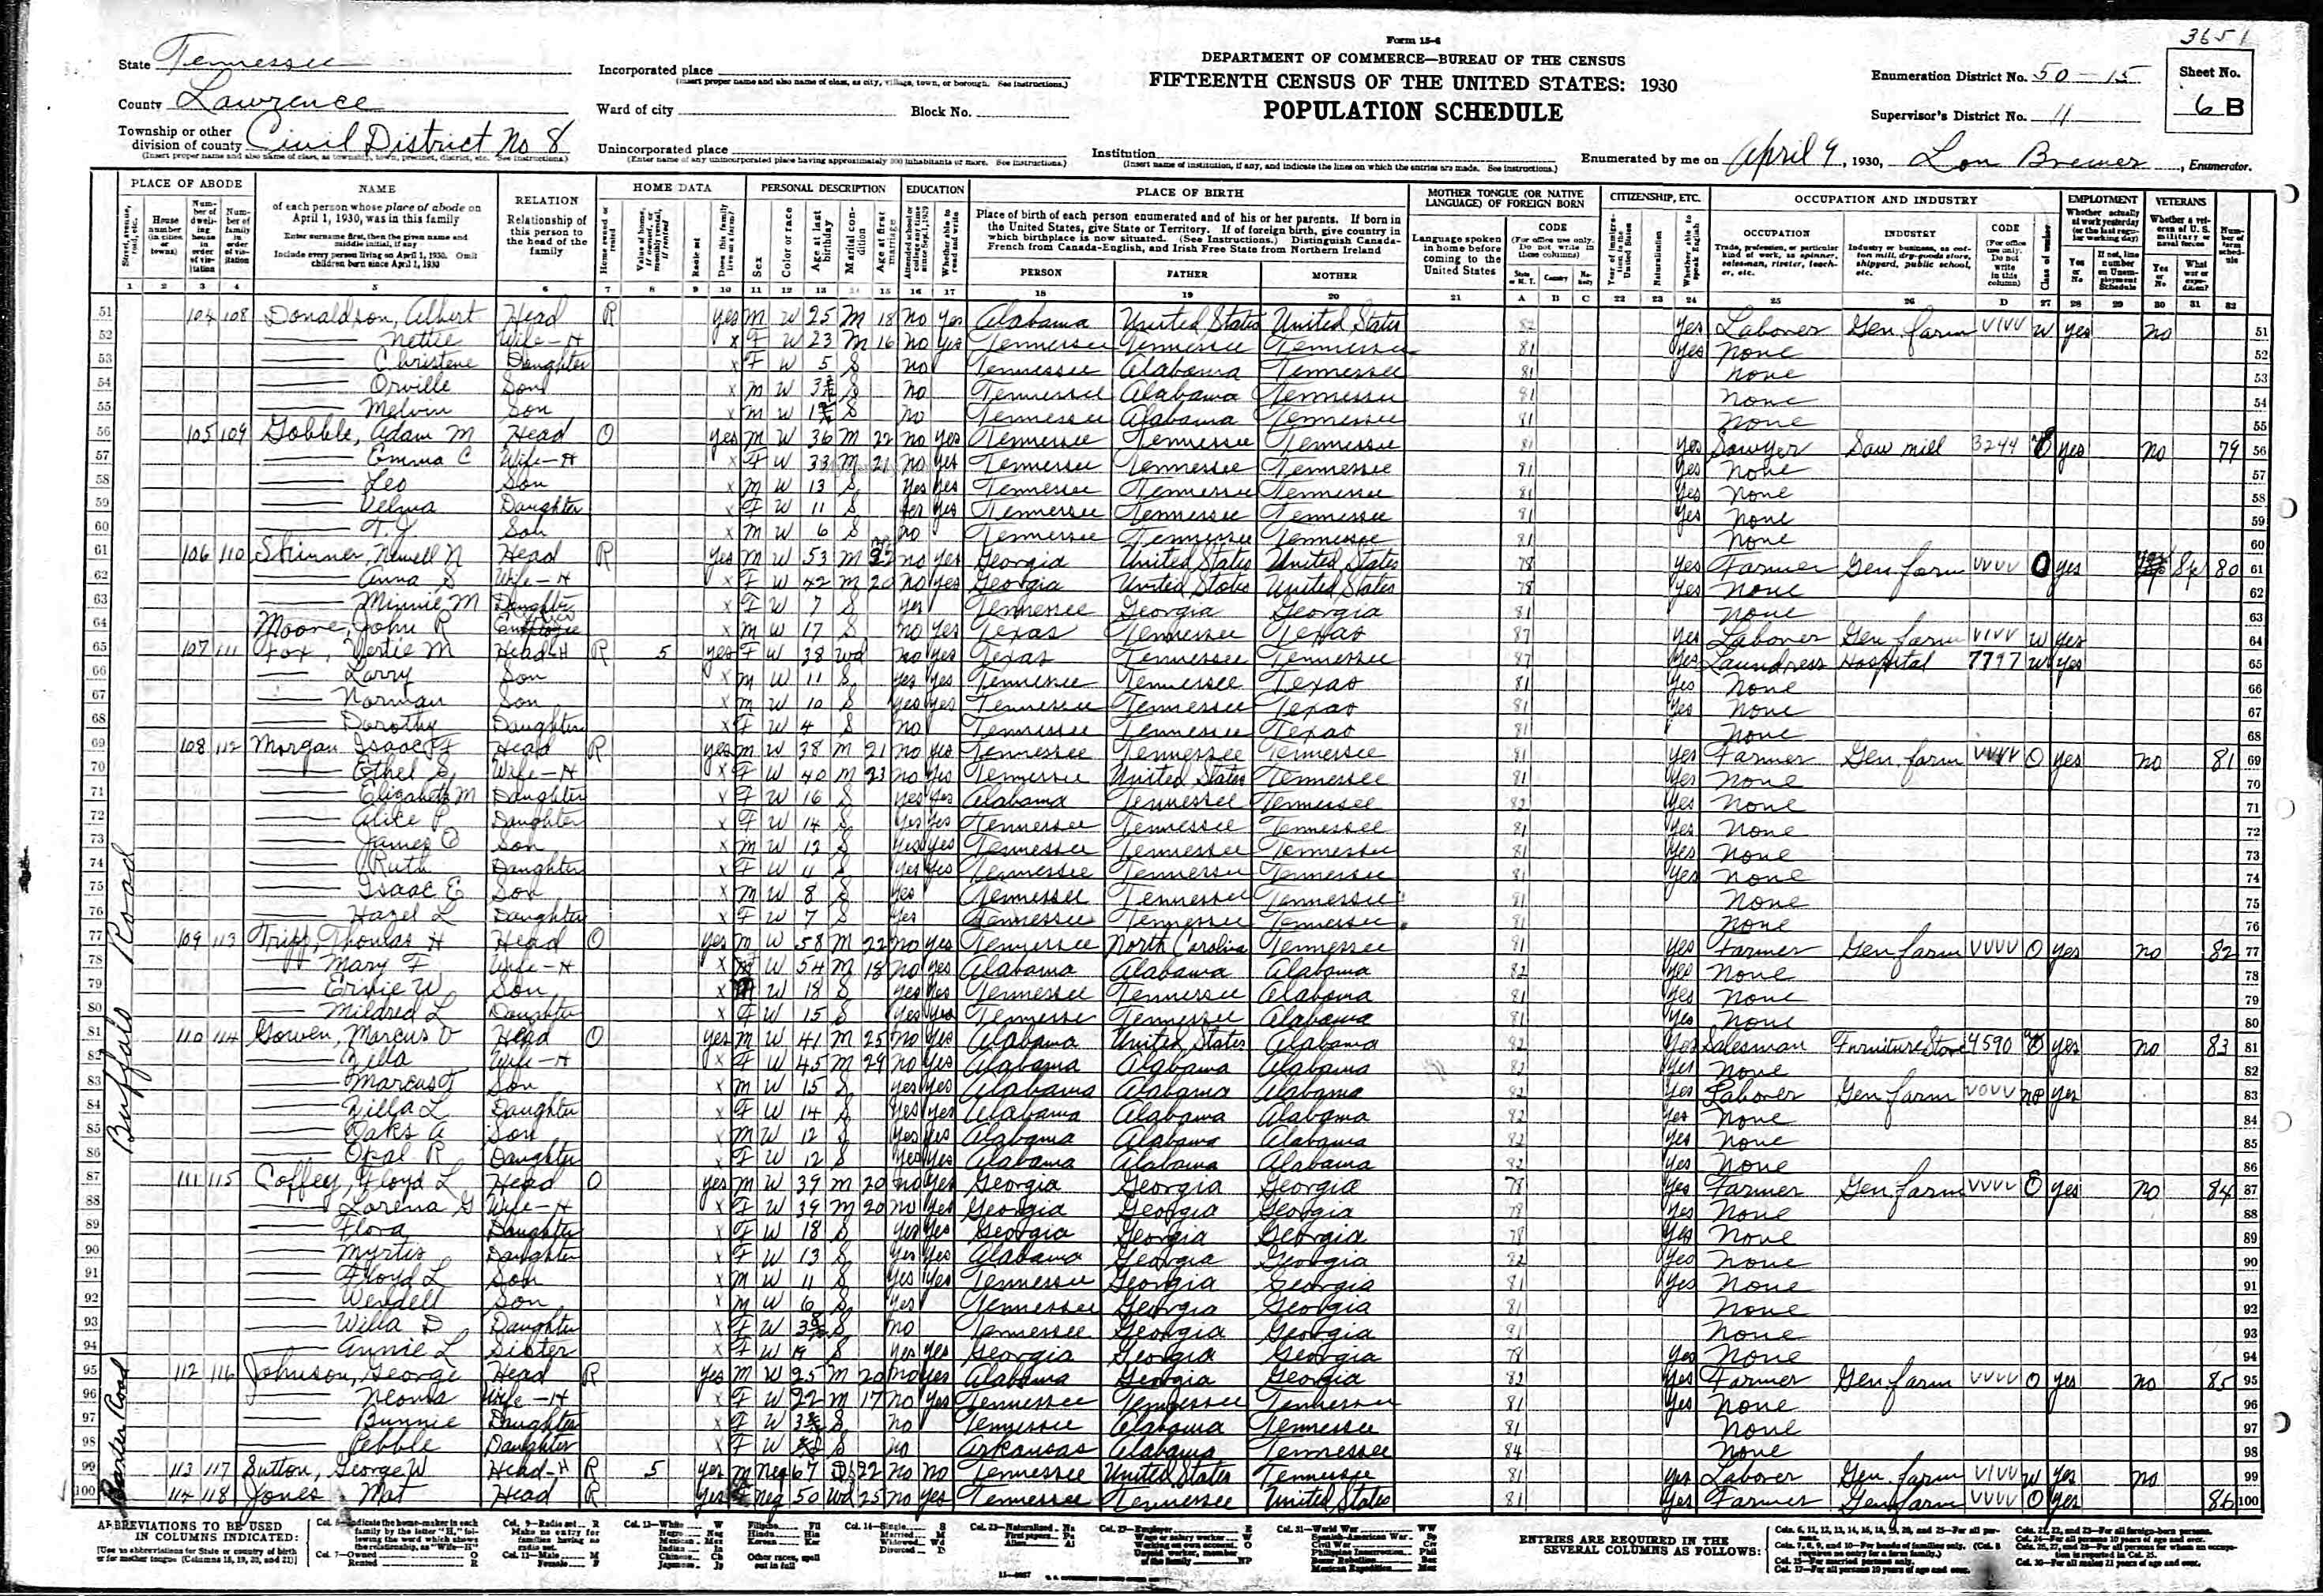 3651
Form 15-6
DEPARTMENT OF COMMERCE—BUREAU OF THE CENSUS
FIFTEENTH CENSUS OF THE UNITED STATES: 1930
POPULATION SCHEDULE
State Tennessee
County Lawrence
Township or other division of county Civil District No 8
Incorporated place
Ward of city Block No.
Unincorporated place
Institution
Enumeration District No. 50-15
Supervisor's District No. 11
Sheet No. 6 B
Enumerated by me on April 9, 1930, Lon Brewer, Enumerator.
PLACE OF ABODE NAME RELATION HOME DATA PERSONAL DESCRIPTION EDUCATION PLACE OF BIRTH MOTHER TONGUE (OR NATIVE LANGUAGE) OF FOREIGN BORN CITIZENSHIP, ETC. OCCUPATION AND INDUSTRY EMPLOYMENT VETERANS
of each person whose place of abode on April 1, 1930, was in this family
Enter surname first, then the given name and middle initial, if any
Include every person living on April 1, 1930. Omit children born since April 1, 1930
Relationship of this person to the head of the family
Place of birth of each person enumerated and of his or her parents. If born in the United States, give State or Territory. If of foreign birth, give country in which birthplace is now situated. (See Instructions.) Distinguish Canada-French from Canada-English, and Irish Free State from Northern Ireland
PERSON FATHER MOTHER
Language spoken in home before coming to the United States
CODE
OCCUPATION INDUSTRY CODE
51 104 108 Donaldson, Albert Head R yes M W 25 M 18 no yes Alabama United States United States 82 yes Laborer Gen. farm VIVV W yes no 51
52 Nettie Wife-H x F W 23 M 16 no yes Tennessee Tennessee Tennessee 81 yes none 52
53 Christene Daughter x F W 5 S no Tennessee Alabama Tennessee 81 none 53
54 Orville Son x M W S no Tennessee Alabama Tennessee 81 none 54
55 Melvin Son x M W S no Tennessee Alabama Tennessee 81 none 55
56 105 109 Gobble, Adam M Head O yes M W 36 M 22 no yes Tennessee Tennessee Tennessee 81 yes Sawyer Saw mill 3244 yes no 79 56
57 Emma C Wife-H x F W 33 M 21 no yes Tennessee Tennessee Tennessee 81 yes none 57
58 Leo Son x M W 13 S yes yes Tennessee Tennessee Tennessee 81 yes none 58
59 Velma Daughter x F W 11 S yes yes Tennessee Tennessee Tennessee 81 yes none 59
60 T.J. Son x M W 6 S no Tennessee Tennessee Tennessee 81 none 60
61 106 110 Skinner, Newell N Head R yes M W 53 M no yes Georgia United States United States 78 yes Farmer Gen. farm VVVV O yes 80 61
62 Anna S Wife-H x F W 42 M 20 no yes Georgia United States United States 78 yes none 62
63 Minnie M Daughter x F W 7 S yes Tennessee Georgia Georgia 81 none 63
64 Moore, John R x M W 17 S no yes Texas Tennessee Texas 87 yes Laborer Gen. farm VIVV W yes 64
65 107 111 Fox, Vertie M Head-H R 5 yes F W 38 Wd no yes Texas Tennessee Tennessee 87 yes Laundress Hospital 7797 W yes 65
66 Larry Son x M W 11 S yes yes Tennessee Tennessee Texas 81 yes none 66
67 Norman Son x M W 10 S yes yes Tennessee Tennessee Texas 81 yes none 67
68 Dorothy Daughter x F W 4 S no Tennessee Tennessee Texas 81 none 68
69 108 112 Morgan Isaac F Head R yes M W 38 M 21 no yes Tennessee Tennessee Tennessee 81 yes Farmer Gen. farm VVVV O yes no 81 69
70 Ethel S Wife-H x F W 40 M 23 no yes Tennessee United States Tennessee 81 yes none 70
71 Elizabeth M Daughter x F W 16 S yes yes Alabama Tennessee Tennessee 82 yes none 71
72 Alice P Daughter x F W 14 S yes yes Tennessee Tennessee Tennessee 81 yes none 72
73 James O Son x M W 12 S yes yes Tennessee Tennessee Tennessee 81 yes none 73
74 Ruth Daughter x F W 11 S yes yes Tennessee Tennessee Tennessee 81 yes none 74
75 Isaac E Son x M W 8 S yes Tennessee Tennessee Tennessee 81 none 75
76 Hazel L Daughter x F W 7 S yes Tennessee Tennessee Tennessee 81 none 76
77 109 113 Tripp, Thomas H Head O yes M W 58 M 22 no yes Tennessee North Carolina Tennessee 81 yes Farmer Gen farm VVVV O yes no 82 77
78 Mary F Wife-H x W 54 M 18 no yes Alabama Alabama Alabama 82 yes none 78
79 Ernie W Son x M W 18 S yes yes Tennessee Tennessee Alabama 81 yes none 79
80 Mildred L Daughter x F W 15 S yes yes Tennessee Tennessee Alabama 81 yes none 80
81 110 114 Gowen, Marcus O Head O yes M W 41 M 25 no yes Alabama United States Alabama 82 yes Salesman Furniture Store 4590 yes no 83 81
82 Zilla Wife-H x F W 45 M 29 no yes Alabama Alabama Alabama 82 yes none 82
83 Marcus F Son x M W 15 S yes yes Alabama Alabama Alabama 82 yes Laborer Gen farm VOVV NP yes 83
84 Zilla L Daughter x F W 14 S yes yes Alabama Alabama Alabama 82 yes none 84
85 Oaks A Son x M W 12 S yes yes Alabama Alabama Alabama 82 yes none 85
86 Opal R Daughter x F W 12 S yes yes Alabama Alabama Alabama 82 yes none 86
87 111 115 Coffey, Floyd L Head O yes M W 39 M 20 no yes Georgia Georgia Georgia 78 yes Farmer Gen farm VVVV O yes no 84 87
88 Lorena G Wife-H x F W 39 M 20 no yes Georgia Georgia Georgia 78 yes none 88
89 Flora Daughter x F W 18 S yes yes Georgia Georgia Georgia 78 yes none 89
90 Myrtis Daughter x F W 13 S yes yes Alabama Georgia Georgia 82 yes none 90
91 Floyd L Son x M W 11 S yes yes Tennessee Georgia Georgia 81 yes none 91
92 Wendell Son x M W 6 S yes Tennessee Georgia Georgia 81 none 92
93 Willa D Daughter x F W S no Tennessee Georgia Georgia 81 none 93
94 Annie L Sister x F W 19 S yes yes Georgia Georgia Georgia 78 yes none 94
95 112 116 Johnson, George Head R yes M W 25 M 20 no yes Alabama Georgia Georgia 82 yes Farmer Gen farm VVVV O yes no 85 95
96 Neoma Wife-H x F W 22 M 17 no yes Tennessee Tennessee Tennessee 81 yes none 96
97 Bunnie Daughter x F W S no Tennessee Alabama Tennessee 81 none 97
98 Pebble Daughter x F W S no Arkansas Alabama Tennessee 84 none 98
99 113 117 Sutton, George W Head-H R 5 yes M Neg 67 D 22 no no Tennessee United States Tennessee 81 yes Laborer Gen. farm VIVV W yes no 99
100 114 118 Jones Mat Head R yes F Neg 50 Wd 25 no yes Tennessee Tennessee United States 81 yes Farmer Gen farm VVVV O yes 86 100
Buffalo Road
ABBREVIATIONS TO BE USED IN COLUMNS INDICATED:
ENTRIES ARE REQUIRED IN THE SEVERAL COLUMNS AS FOLLOWS: